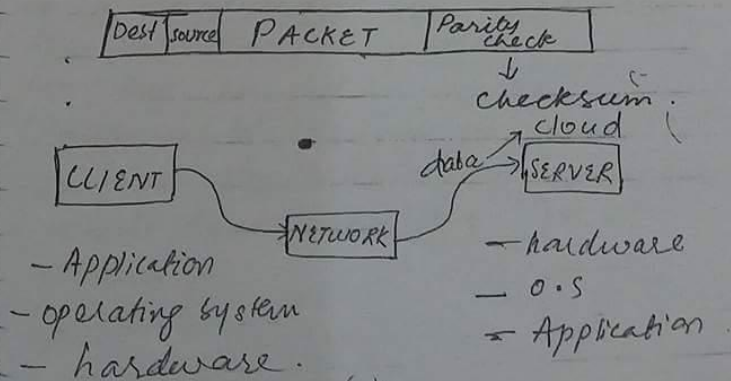 Dest source PACKET Parity check
checksum.
cloud
data
CLIENT
SERVER
NETWORK
- Application
- operating system
- hardware.
- hardware
- O.S
- Application